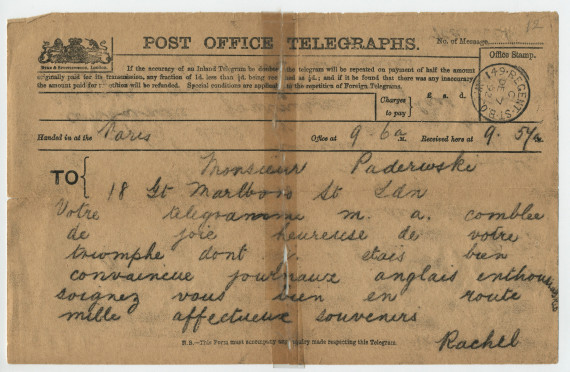 POST OFFICE TELEGRAPHS.
No. of Message
12
Office Stamp.
If the accuracy of an Inland Telegram be doubted, the telegram will be repeated on payment of half the amount
originally paid for its transmission, any fraction of 1d. less than ½d. being reckoned as ½d.; and if it be found that there was any inaccuracy,
the amount paid for repetition will be refunded. Special conditions are applicable to the repetition of Foreign Telegrams.
REGENT-ST B.O
Charges to pay
£ s. d.
Handed in at the Paris Office at 9.6 a M. Received here at 9.54 a M.
TO
Monsieur Paderwski
18 Gt Marlboro St Ldn
Votre telegramme m. a. comblee
de joie heureuse de votre
triomphe dont etais bien
convaincue journaux anglais enthousiastes
soignez vous bien en route
mille affectueux souvenirs
Rachel
N.B.—This Form must accompany any inquiry made respecting this Telegram.